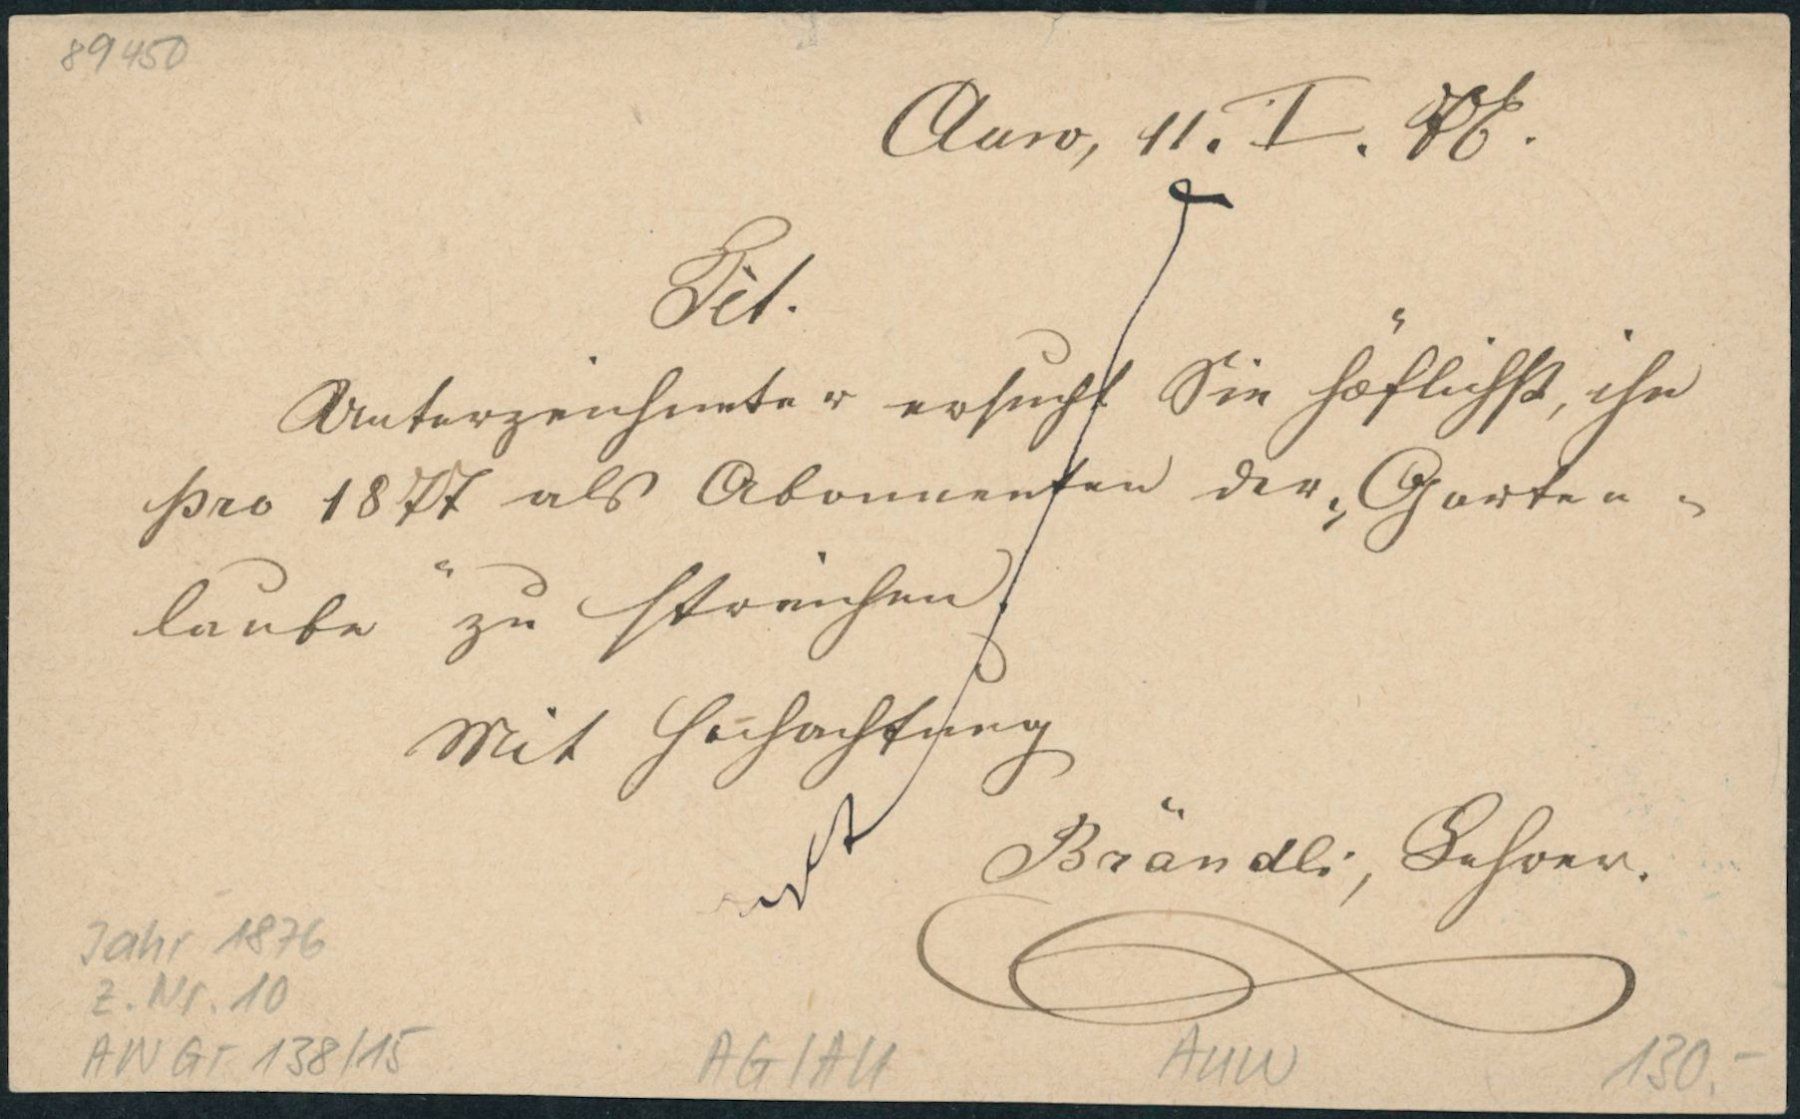 89450
Auw, 11. I. 76.
Tit.
Unterzeichneter ersucht Sie höflichst, ihn
pro 1877 als Abonnenten der „Garten-
laube“ zu streichen.
Mit Hochachtung
Brändli, Lehrer.
Jahr 1876
Z. Nr. 10
AW Gr 138/15
AG/AU
AUW
130.-